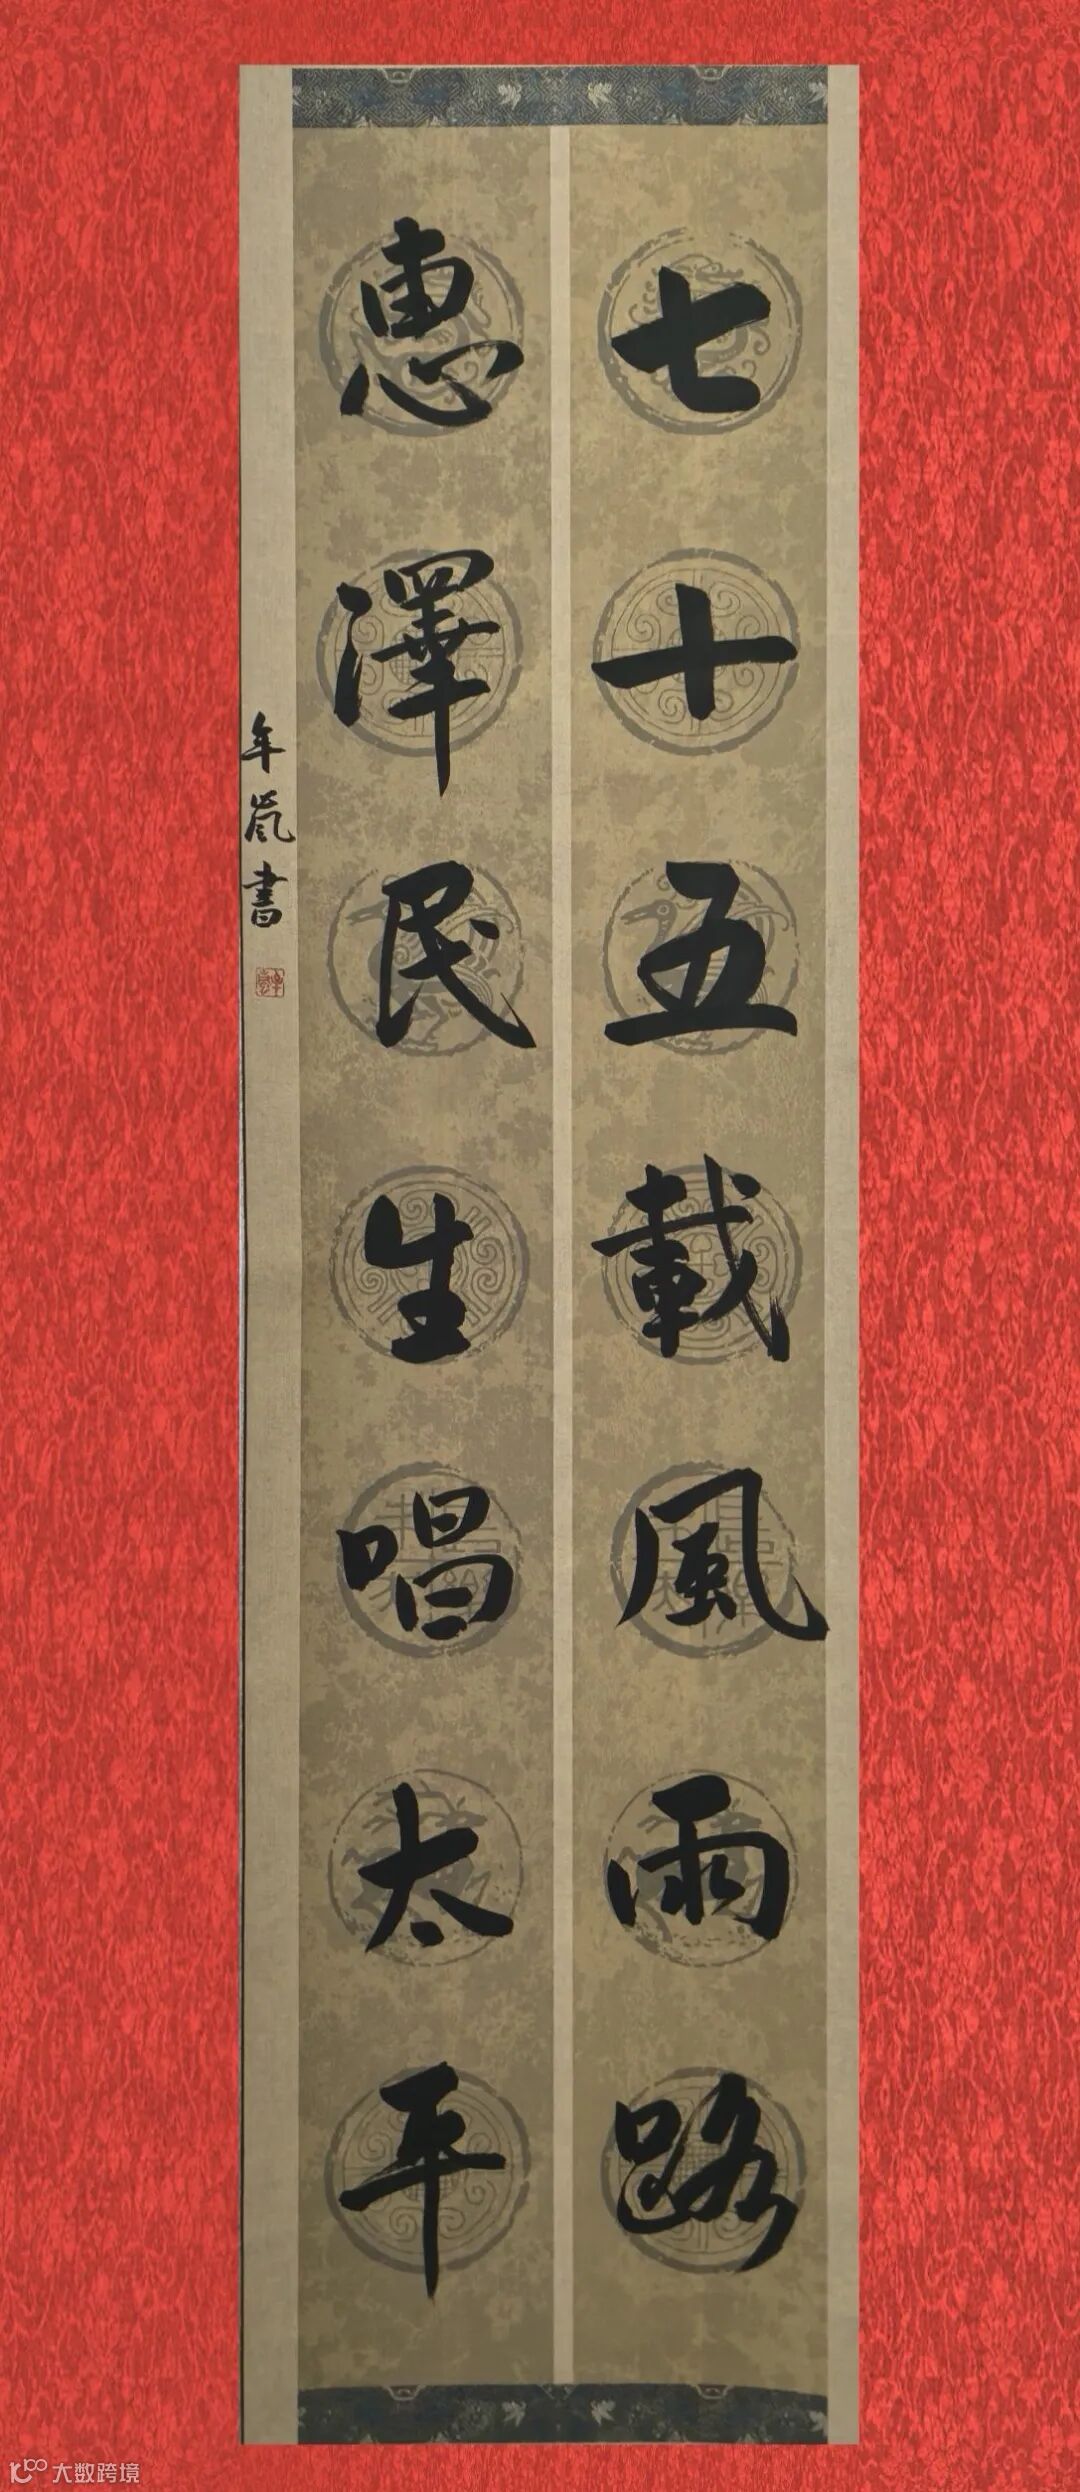 七十五載風雨路
惠澤民生唱太平
年嵐書
大数跨境